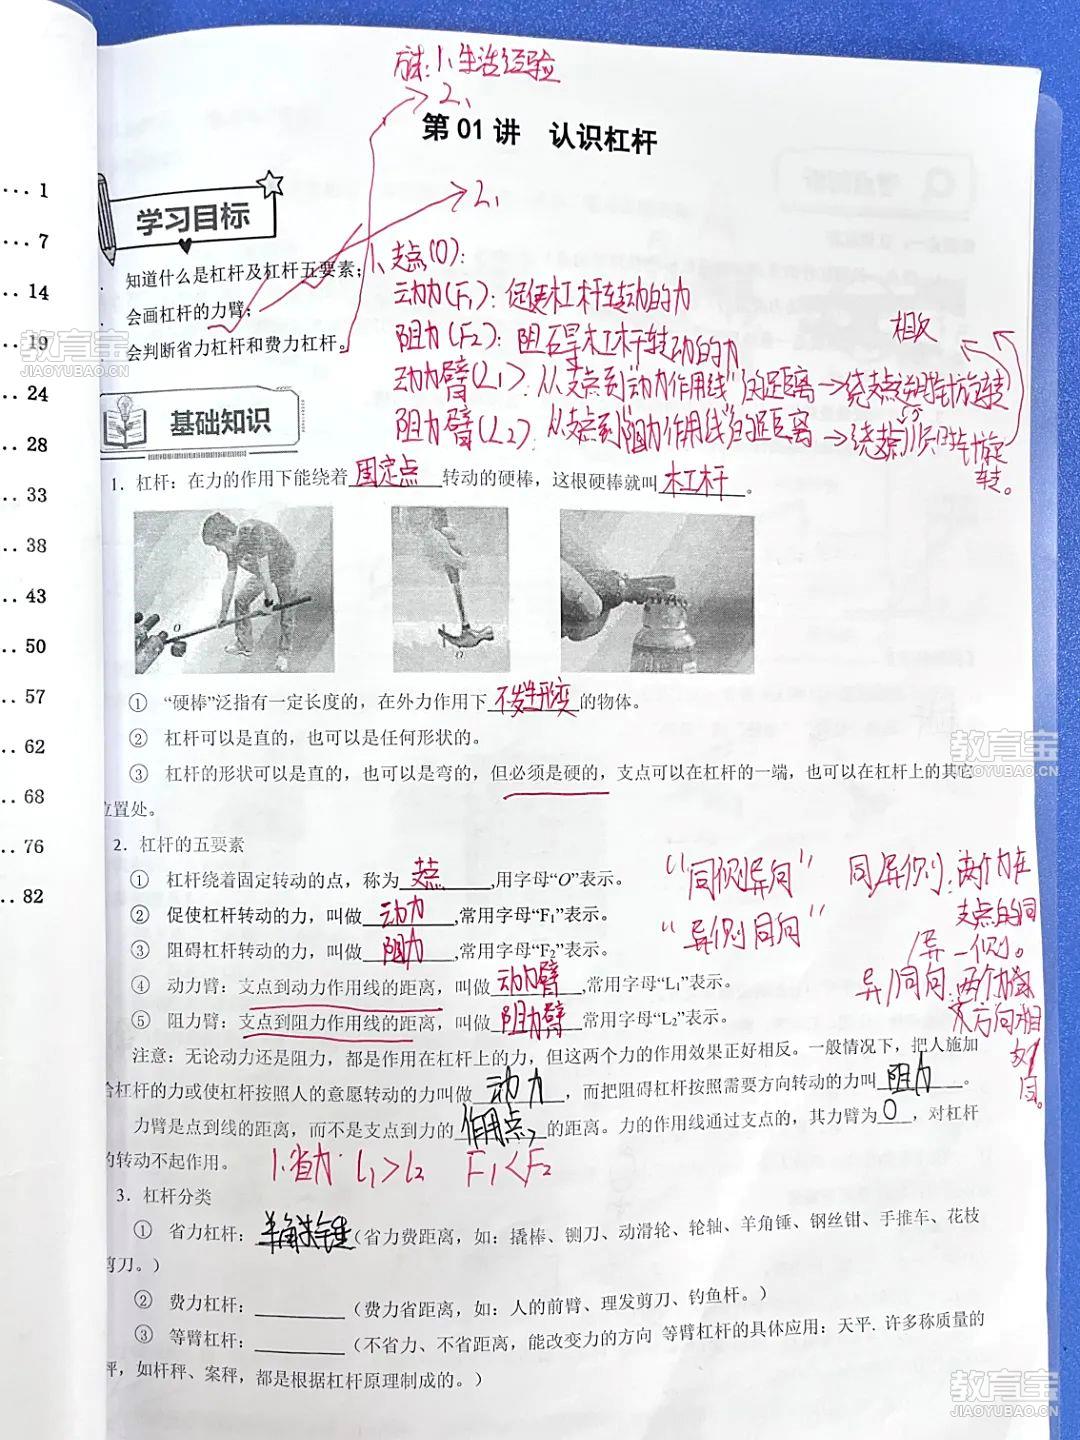 方法:1、生活经验
2、
第 01 讲 认识杠杆
... 1
.. 7
.. 14
.. 19
24
.. 28
.. 33
.. 38
.. 43
.. 50
.. 57
.. 62
.. 68
.. 76
.. 82
学习目标
2、
知道什么是杠杆及杠杆五要素;
会画杠杆的力臂;
会判断省力杠杆和费力杠杆。
1、支点(O):
动力(F₁):促使杠杆转动的力
阻力(F₂):阻碍杠杆转动的力
相反
动力臂(L₁):从支点到"动力作用线"的距离→绕支点逆时针旋转
阻力臂(L₂):从支点到"阻力作用线"的距离→绕支点顺时针旋转。
基础知识
1.杠杆:在力的作用下能绕着固定点转动的硬棒,这根硬棒就叫杠杆。
O
O
① “硬棒”泛指有一定长度的,在外力作用下不发生形变的物体。
② 杠杆可以是直的,也可以是任何形状的。
③ 杠杆的形状可以是直的,也可以是弯的,但必须是硬的,支点可以在杠杆的一端,也可以在杠杆上的其它
位置处。
2.杠杆的五要素
① 杠杆绕着固定转动的点,称为支点,用字母“O”表示。
② 促使杠杆转动的力,叫做动力,常用字母“F₁”表示。
③ 阻碍杠杆转动的力,叫做阻力,常用字母“F₂”表示。
④ 动力臂:支点到动力作用线的距离,叫做动力臂,常用字母“L₁”表示。
⑤ 阻力臂:支点到阻力作用线的距离,叫做阻力臂常用字母“L₂”表示。
“同侧异向”
“异侧同向”
同/异侧:两个力在
支点的同
/异一侧。
异/同向:两个力
方向相
反/
同。
注意:无论动力还是阻力,都是作用在杠杆上的力,但这两个力的作用效果正好相反。一般情况下,把人施加
给杠杆的力或使杠杆按照人的意愿转动的力叫做动力,而把阻碍杠杆按照需要方向转动的力叫阻力。
力臂是点到线的距离,而不是支点到力的作用点的距离。力的作用线通过支点的,其力臂为0,对杠杆
的转动不起作用。
1、省力: L₁>L₂ F₁<F₂
3.杠杆分类
① 省力杠杆:羊角锤(省力费距离,如:撬棒、铡刀、动滑轮、轮轴、羊角锤、钢丝钳、手推车、花枝
剪刀。)
② 费力杠杆:(费力省距离,如:人的前臂、理发剪刀、钓鱼杆。)
③ 等臂杠杆:(不省力、不省距离,能改变力的方向 等臂杠杆的具体应用:天平. 许多称质量的
秤,如杆秤、案秤,都是根据杠杆原理制成的。)
教育宝
JIAOYUBAO.CN
教育宝
JIAOYUBAO.CN
教育宝
JIAOYUBAO.CN